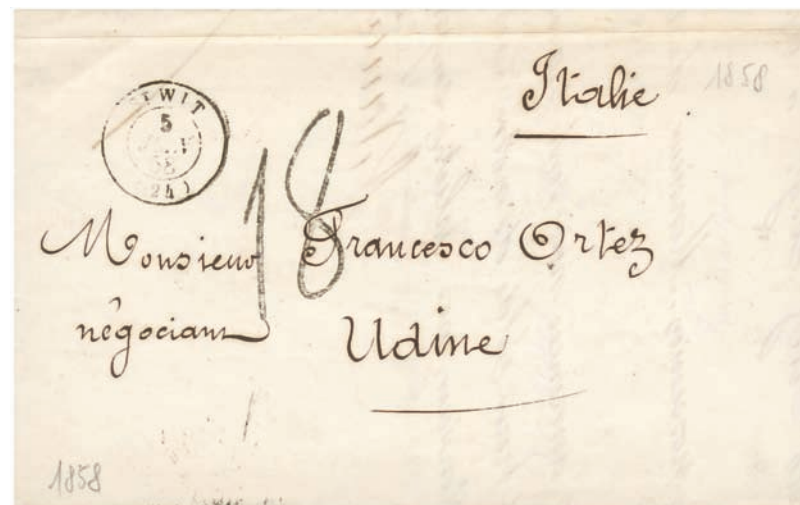 Italie
1858
5
(24)
18
Monsieur Francesco Ortez
négociant
Udine
1858